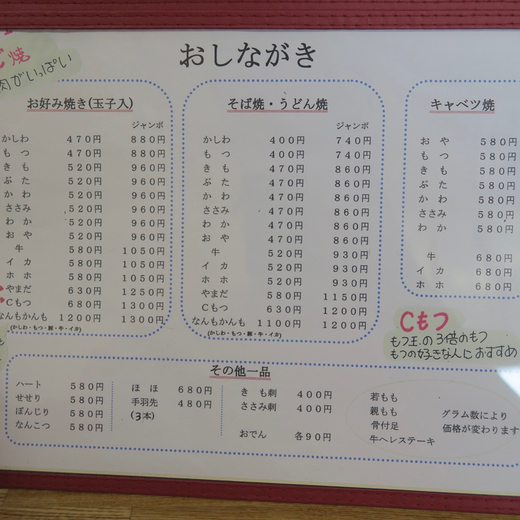 焼
肉がいっぱい
おしながき
お好み焼き(玉子入)
ジャンボ
かしわ 470円 880円
もつ 470円 880円
きも 520円 960円
ぶた 520円 960円
かわ 520円 960円
ささみ 520円 960円
わか 520円 960円
おや 520円 960円
牛 580円 1050円
イカ 580円 1050円
ホホ 580円 1050円
やまだ 630円 1250円
Cもつ 680円 1300円
なんもかんも 1200円 1300円
(かしわ・もつ・豚・牛・イカ)
そば焼・うどん焼
ジャンボ
かしわ 400円 740円
もつ 400円 740円
きも 460円 860円
ぶた 460円 860円
かわ 460円 860円
ささみ 460円 860円
わか 460円 860円
おや 460円 860円
牛 520円 930円
イカ 520円 930円
ホホ 520円 930円
やまだ 580円 1150円
Cもつ 630円 1200円
なんもかんも 1100円 1200円
(かしわ・もつ・豚・牛・イカ)
キャベツ焼
おや 580円
もつ 580円
きも 580円
ぶた 580円
かわ 580円
ささみ 580円
わか 580円
牛 680円
イカ 680円
ホホ 680円
Cもつ
もつ王の3倍のもつ
もつの好きな人におすすめ
その他一品
ハート 580円
せせり 580円
ぼんじり 580円
なんこつ 580円
ほほ 680円
手羽先 480円
(3本)
きも刺 400円
ささみ刺 400円
おでん 各90円
若もも
親もも
骨付足
牛ヘレステーキ
グラム数により
価格が変わります